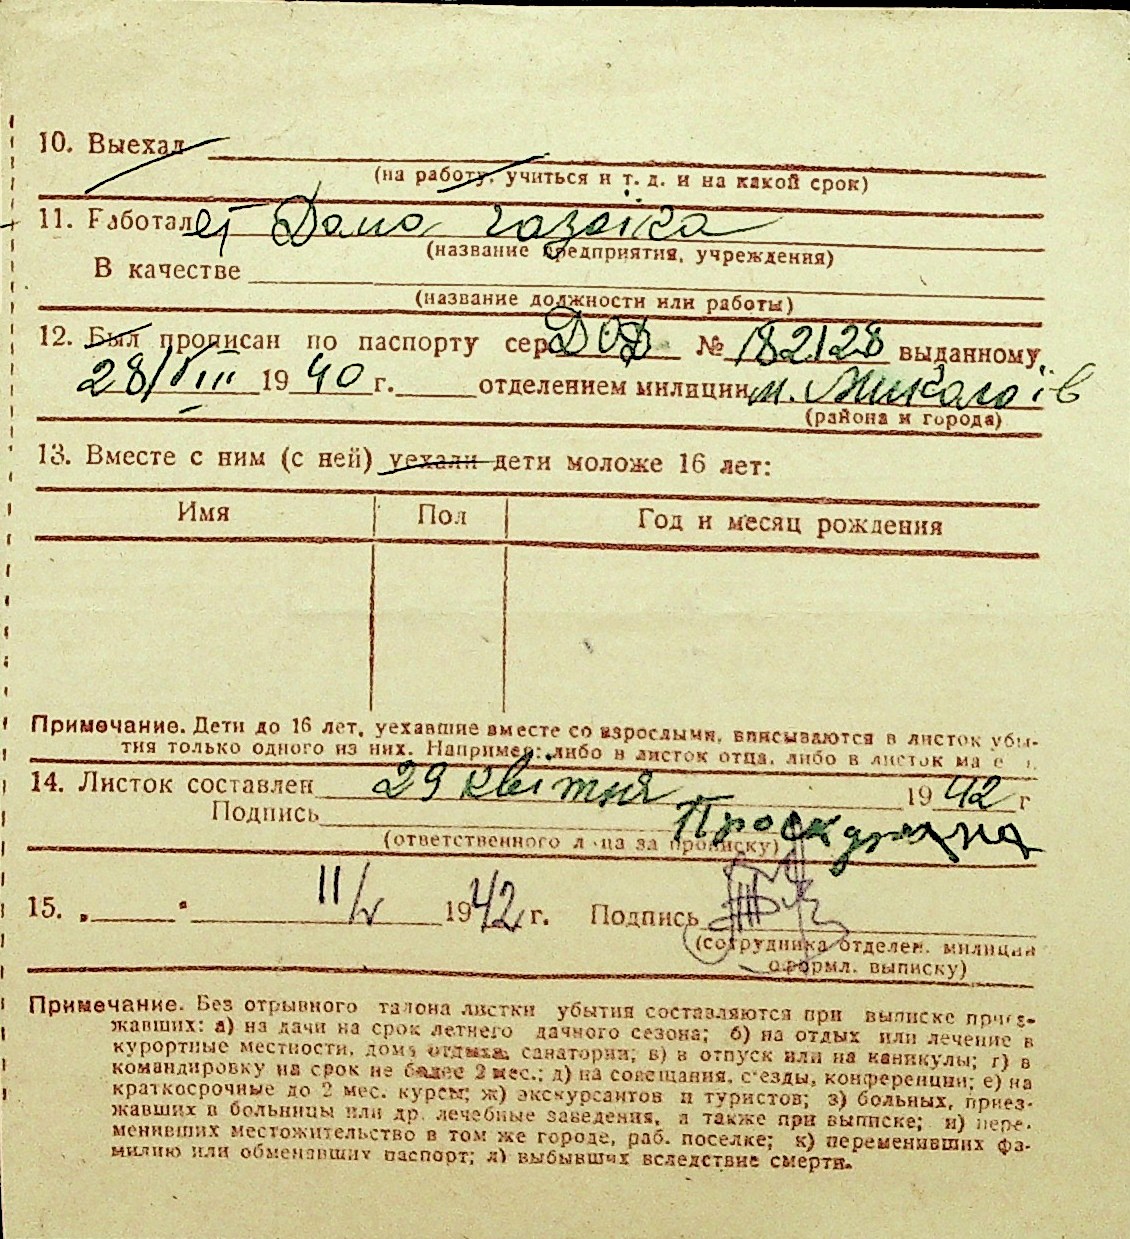 10. Выехал
(на работу, учиться и т. д. и на какой срок)
11. Работает Дома
(название предприятия, учреждения)
В качестве
(название должности или работы)
12. Был прописан по паспорту сер. № 182128 выданному
28/VIII 1940 г. отделением милиции м. Миколаїв
(района и города)
13. Вместе с ним (с ней) уехали дети моложе 16 лет:
Имя Пол Год и месяц рождения
Примечание. Дети до 16 лет, уехавшие вместе со взрослыми, вписываются в листок убы-
тия только одного из них. Например: либо в листок отца, либо в листок
14. Листок составлен 29 квітня 1942 г
Подпись
(ответственного лица за прописку)
15. „ " 11/V 1942 г. Подпись
(сотрудника отделен. милиции
оформл. выписку)
Примечание. Без отрывного талона листки убытия составляются при выписке приез-
жавших: а) на дачи на срок летнего дачного сезона; б) на отдых или лечение в
курортные местности, дома отдыха, санатории; в) в отпуск или на каникулы; г) в
командировку на срок не более 2 мес.; д) на совещания, съезды, конференции; е) на
краткосрочные до 2 мес. курсы; ж) экскурсантов и туристов; з) больных, приез-
жавших в больницы или др. лечебные заведения, а также при выписке; и) пере-
менивших местожительство в том же городе, раб. поселке; к) переменивших фа-
милию или обменявших паспорт; л) выбывших вследствие смерти.